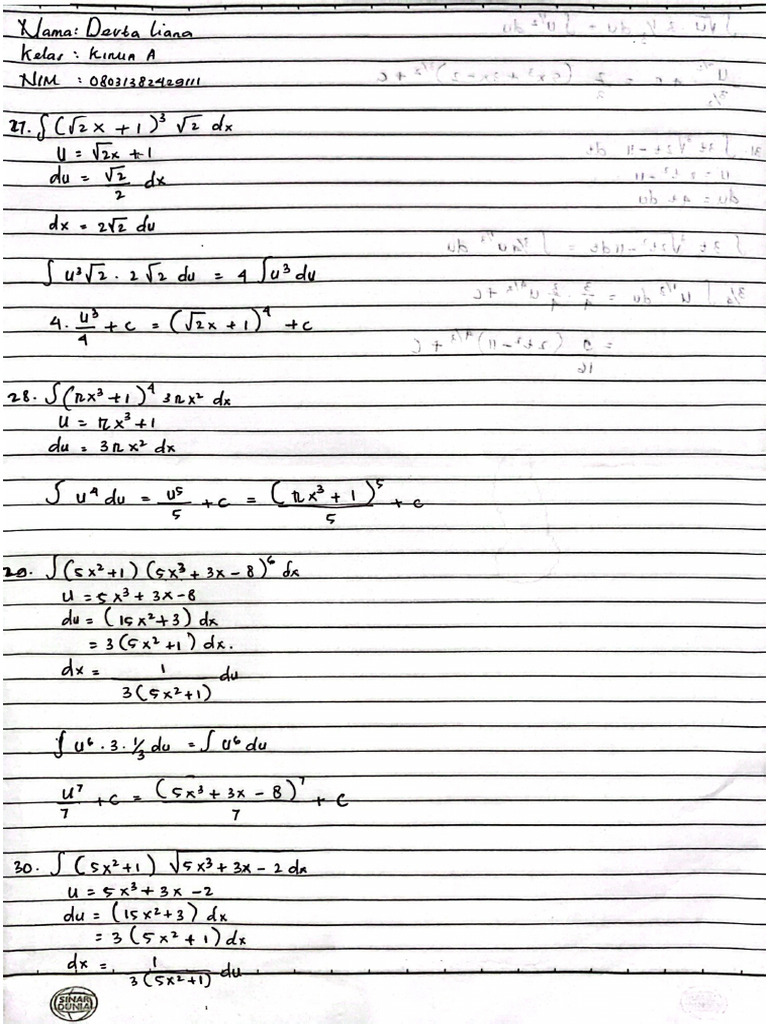 Nama: Devta Liana
Kelas: Kimia A
NIM : 08031382429111
27. ∫(√2x + 1)³ √2 dx
u = √2x + 1
du = √2/2 dx
dx = 2√2 du
∫ u³√2 . 2√2 du = 4 ∫u³ du
4. u³/4 + c = (√2x + 1)⁴ + c
28. ∫(πx³ + 1)⁴ 3πx² dx
u = πx³ + 1
du = 3πx² dx
∫ u⁴ du = u⁵/5 + c = (πx³ + 1)⁵/5 + c
29. ∫(5x²+1) (5x³ + 3x - 8)⁶ dx
u = 5x³ + 3x - 8
du = (15x²+3) dx
= 3(5x²+1) dx.
dx = 1/3(5x²+1) du
∫ u⁶ . 3 . 1/3 du = ∫ u⁶ du
u⁷/7 + c = (5x³ + 3x - 8)⁷/7 + c
30. ∫ (5x²+1) √5x³ + 3x - 2 dx
u = 5x³ + 3x - 2
du = (15x²+3) dx
= 3 (5x² + 1) dx
dx = 1/3(5x²+1) du
SINAR DUNIA